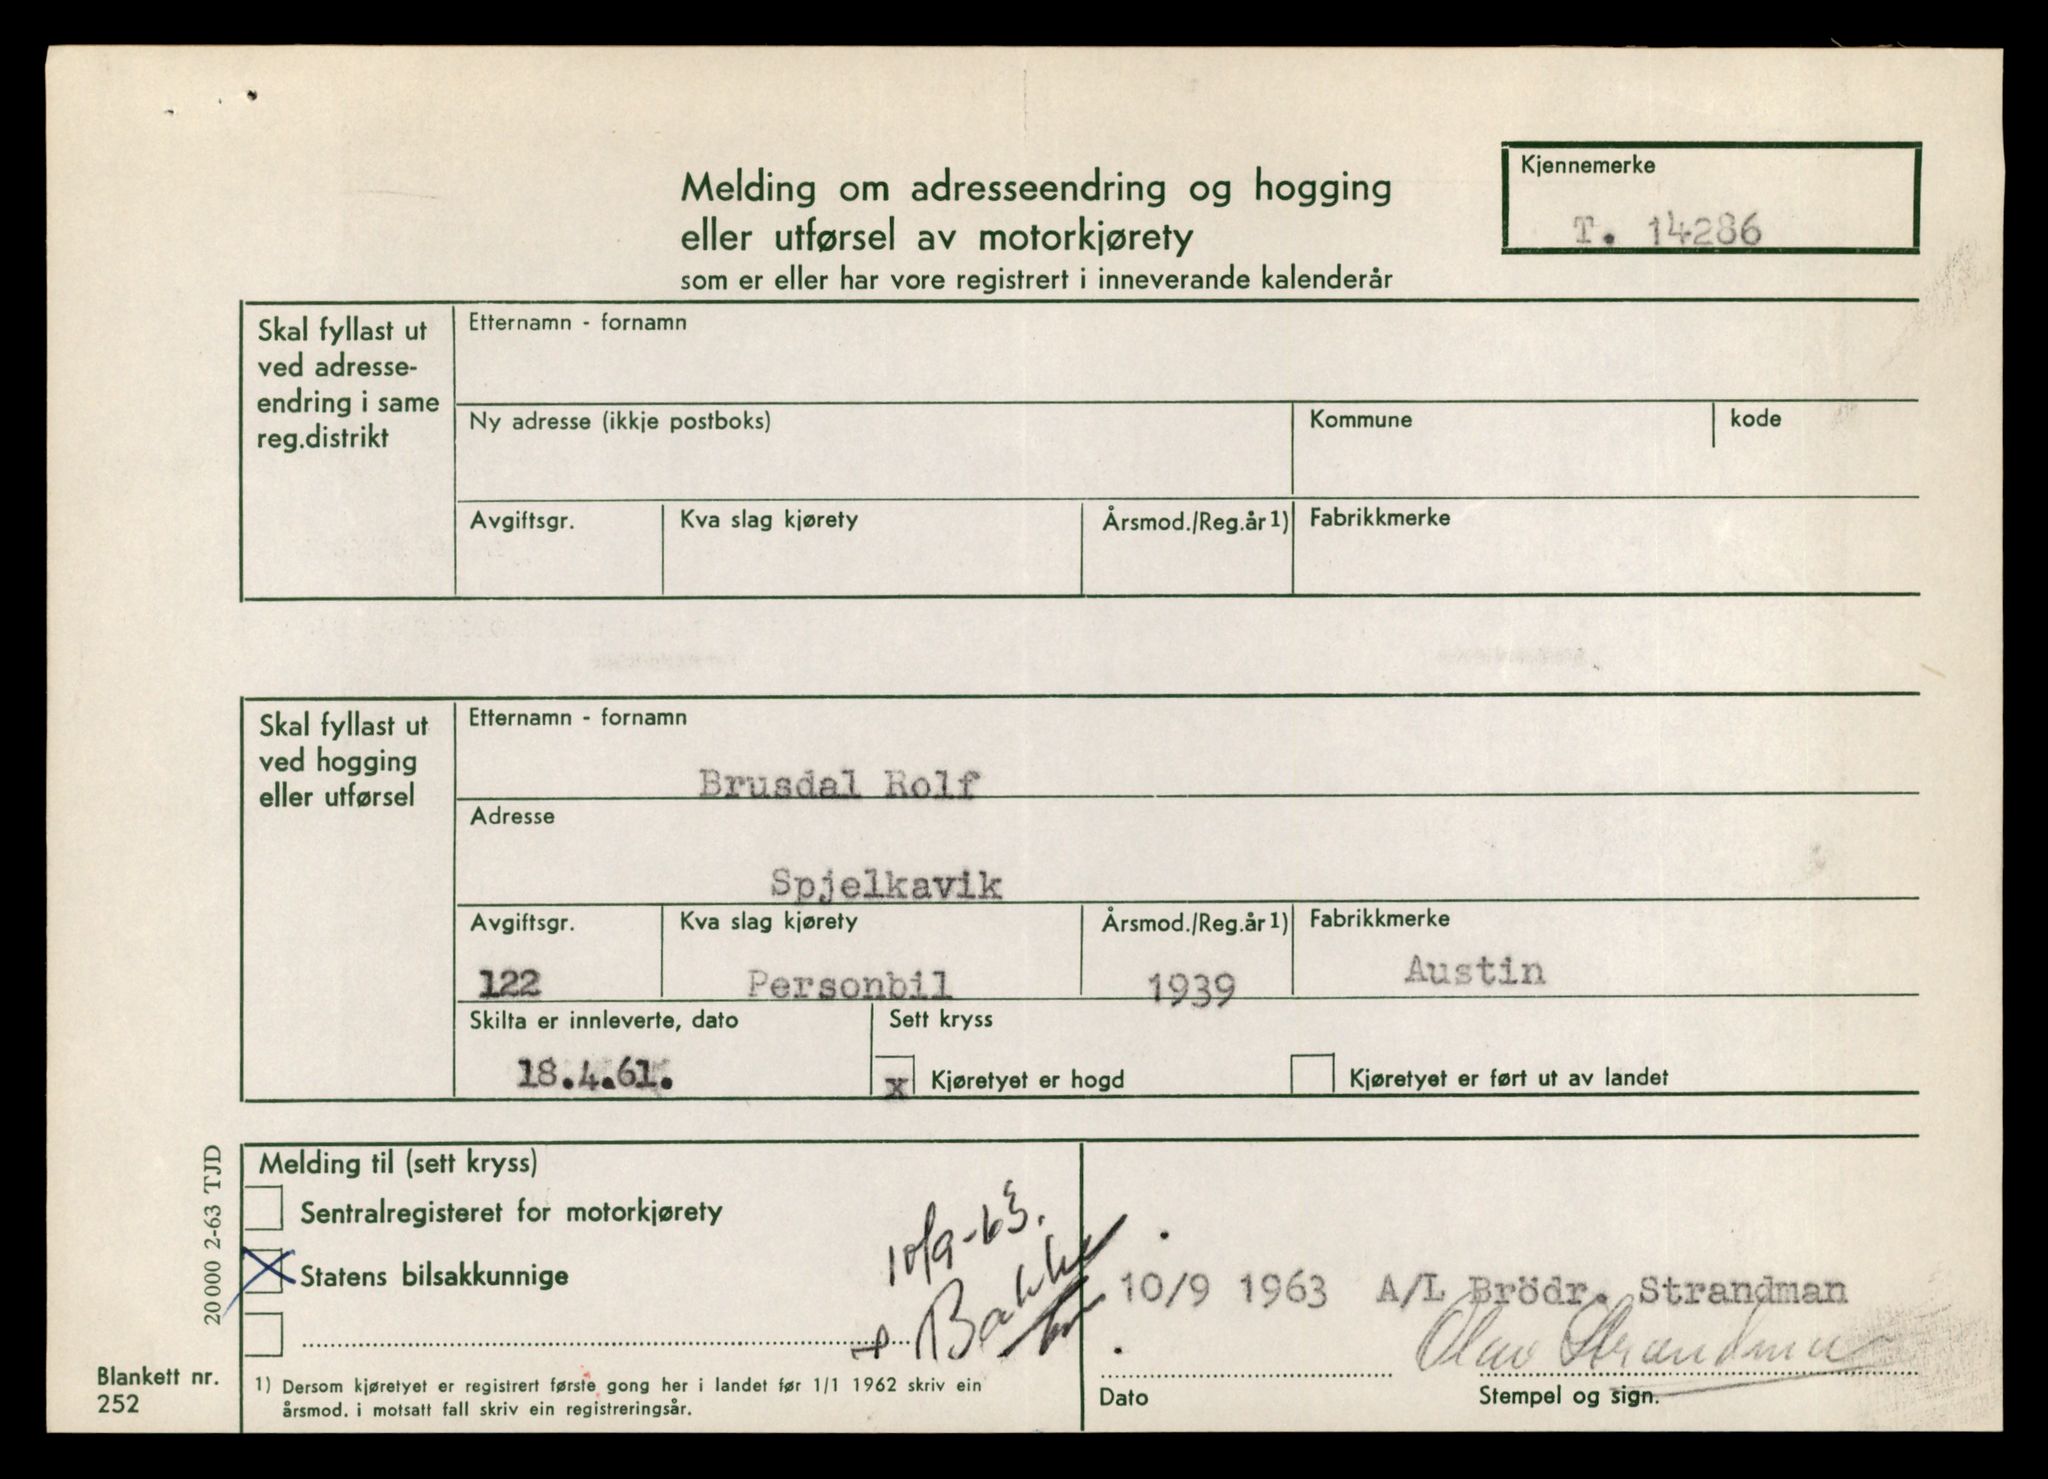 Melding om adresseendring og hogging
eller utførsel av motorkjørety
som er eller har vore registrert i inneverande kalenderår
Kjennemerke
T. 14286
Skal fyllast ut
ved adresse-
endring i same
reg.distrikt
Etternamn - fornamn
Ny adresse (ikkje postboks)
Kommune
kode
Avgiftsgr.
Kva slag kjørety
Årsmod./Reg.år 1)
Fabrikkmerke
Skal fyllast ut
ved hogging
eller utførsel
Etternamn - fornamn
Brusdal Rolf
Adresse
Spjelkavik
Avgiftsgr.
122
Kva slag kjørety
Personbil
Årsmod./Reg.år 1)
1939
Fabrikkmerke
Austin
Skilta er innleverte, dato
18.4.61.
Sett kryss
x Kjøretyet er hogd
Kjøretyet er ført ut av landet
Melding til (sett kryss)
Sentralregisteret for motorkjørety
Statens bilsakkunnige
10/9-63.
Bakke
10/9 1963 A/L Brödr. Strandman
Olav Strandman
Dato
Stempel og sign.
1) Dersom kjøretyet er registrert første gong her i landet før 1/1 1962 skriv ein
årsmod. i motsatt fall skriv ein registreringsår.
20 000 2-63 TJD
Blankett nr.
252